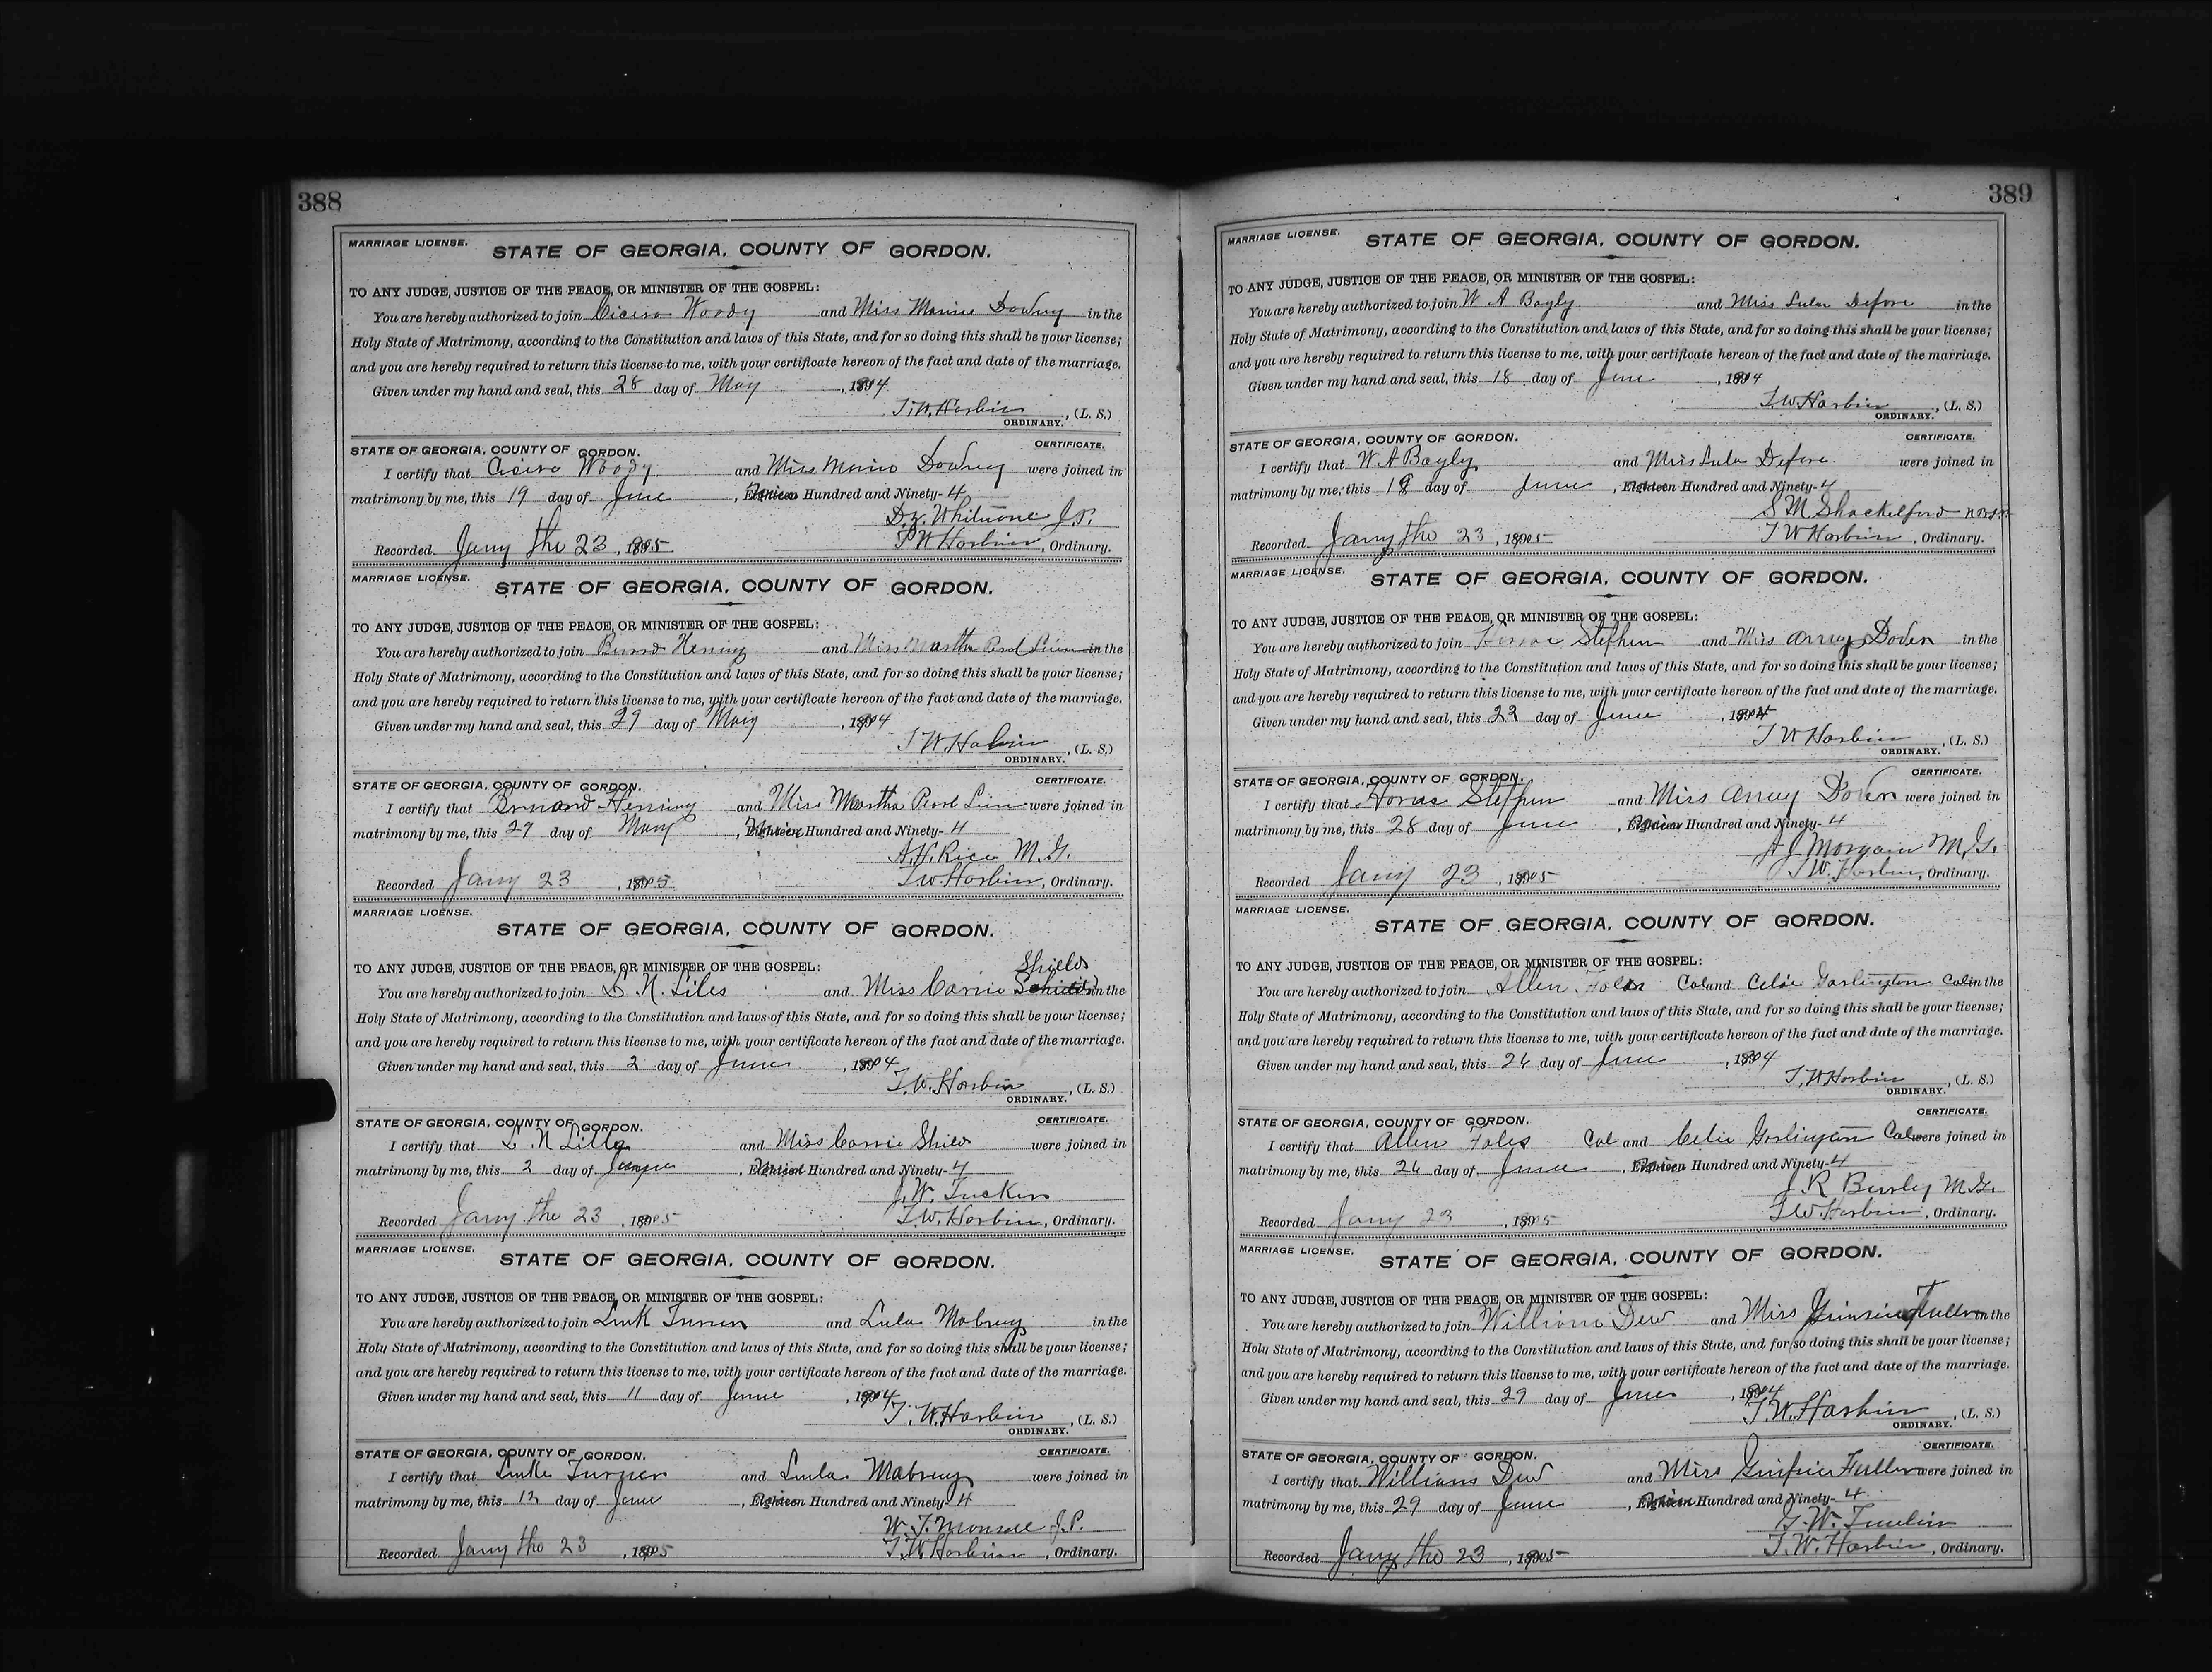 388
MARRIAGE LICENSE.
STATE OF GEORGIA, COUNTY OF GORDON.
TO ANY JUDGE, JUSTICE OF THE PEACE, OR MINISTER OF THE GOSPEL:
You are hereby authorized to join Cicero Woody and Miss Mamie Downy in the
Holy State of Matrimony, according to the Constitution and laws of this State, and for so doing this shall be your license;
and you are hereby required to return this license to me, with your certificate hereon of the fact and date of the marriage.
Given under my hand and seal, this 28 day of May, 1904
T.W. Harbin, (L. S.)
ORDINARY.
STATE OF GEORGIA, COUNTY OF GORDON. CERTIFICATE.
I certify that Cicero Woody and Miss were joined in
matrimony by me, this 19 day of June, Hundred and Ninety-4
J.P.
Recorded Jany the 23, 1905 T W Harbin, Ordinary.
MARRIAGE LICENSE.
STATE OF GEORGIA, COUNTY OF GORDON.
TO ANY JUDGE, JUSTICE OF THE PEACE, OR MINISTER OF THE GOSPEL:
You are hereby authorized to join and Miss Martha in the
Holy State of Matrimony, according to the Constitution and laws of this State, and for so doing this shall be your license;
and you are hereby required to return this license to me, with your certificate hereon of the fact and date of the marriage.
Given under my hand and seal, this 29 day of May, 1904
T W Harbin, (L. S.)
ORDINARY.
STATE OF GEORGIA, COUNTY OF GORDON. CERTIFICATE.
I certify that and Miss Martha were joined in
matrimony by me, this 29 day of May, Hundred and Ninety-4
A.H. Rice M.G.
Recorded Jany 23, 1905 T.W. Harbin, Ordinary.
MARRIAGE LICENSE.
STATE OF GEORGIA, COUNTY OF GORDON.
TO ANY JUDGE, JUSTICE OF THE PEACE, OR MINISTER OF THE GOSPEL:
Shields
You are hereby authorized to join N. Liles and Miss Carrie in the
Holy State of Matrimony, according to the Constitution and laws of this State, and for so doing this shall be your license;
and you are hereby required to return this license to me, with your certificate hereon of the fact and date of the marriage.
Given under my hand and seal, this 2 day of June, 1904
T.W. Harbin, (L. S.)
ORDINARY.
STATE OF GEORGIA, COUNTY OF GORDON. CERTIFICATE.
I certify that N and Miss Carrie were joined in
matrimony by me, this 2 day of June, Hundred and Ninety-4
J.W. Tucker
Recorded Jany the 23, 1905 T.W. Harbin, Ordinary.
MARRIAGE LICENSE.
STATE OF GEORGIA, COUNTY OF GORDON.
TO ANY JUDGE, JUSTICE OF THE PEACE, OR MINISTER OF THE GOSPEL:
You are hereby authorized to join Luk Turner and Lula Mabrey in the
Holy State of Matrimony, according to the Constitution and laws of this State, and for so doing this shall be your license;
and you are hereby required to return this license to me, with your certificate hereon of the fact and date of the marriage.
Given under my hand and seal, this 11 day of June, 1904
T.W. Harbin, (L. S.)
ORDINARY.
STATE OF GEORGIA, COUNTY OF GORDON. CERTIFICATE.
I certify that Luke Turner and Lula Mabrey were joined in
matrimony by me, this 12 day of June, Hundred and Ninety-4
W.T. J.P.
Recorded Jany the 23, 1905 T.W. Harbin, Ordinary.
389
MARRIAGE LICENSE.
STATE OF GEORGIA, COUNTY OF GORDON.
TO ANY JUDGE, JUSTICE OF THE PEACE, OR MINISTER OF THE GOSPEL:
You are hereby authorized to join W A Bagly and Miss Lula Defore in the
Holy State of Matrimony, according to the Constitution and laws of this State, and for so doing this shall be your license;
and you are hereby required to return this license to me, with your certificate hereon of the fact and date of the marriage.
Given under my hand and seal, this 18 day of June, 1904
T.W. Harbin, (L. S.)
ORDINARY.
STATE OF GEORGIA, COUNTY OF GORDON. CERTIFICATE.
I certify that W A Bagly and Miss Lula Defore were joined in
matrimony by me, this day of June, Hundred and Ninety-4
S M Shackelford
Recorded Jany the 23, 1905 T W Harbin, Ordinary.
MARRIAGE LICENSE.
STATE OF GEORGIA, COUNTY OF GORDON.
TO ANY JUDGE, JUSTICE OF THE PEACE, OR MINISTER OF THE GOSPEL:
You are hereby authorized to join Stephen and Miss in the
Holy State of Matrimony, according to the Constitution and laws of this State, and for so doing this shall be your license;
and you are hereby required to return this license to me, with your certificate hereon of the fact and date of the marriage.
Given under my hand and seal, this day of June, 1904
T W Harbin, (L. S.)
ORDINARY.
STATE OF GEORGIA, COUNTY OF GORDON. CERTIFICATE.
I certify that Horace Stephen and Miss were joined in
matrimony by me, this 28 day of June, Hundred and Ninety-4
A J Morgain M.G.
Recorded Jany 23, 1905 T.W. Harbin, Ordinary.
MARRIAGE LICENSE.
STATE OF GEORGIA, COUNTY OF GORDON.
TO ANY JUDGE, JUSTICE OF THE PEACE, OR MINISTER OF THE GOSPEL:
You are hereby authorized to join Allen Col and Celie Garlington Col in the
Holy State of Matrimony, according to the Constitution and laws of this State, and for so doing this shall be your license;
and you are hereby required to return this license to me, with your certificate hereon of the fact and date of the marriage.
Given under my hand and seal, this 26 day of June, 1904
T.W. Harbin, (L. S.)
ORDINARY.
STATE OF GEORGIA, COUNTY OF GORDON. CERTIFICATE.
I certify that Allen Col and Celie Col were joined in
matrimony by me, this 26 day of June, Hundred and Ninety-4
J R M.G.
Recorded Jany 23, 1905 T.W. Harbin, Ordinary.
MARRIAGE LICENSE.
STATE OF GEORGIA, COUNTY OF GORDON.
TO ANY JUDGE, JUSTICE OF THE PEACE, OR MINISTER OF THE GOSPEL:
You are hereby authorized to join William Dew and Miss Fuller in the
Holy State of Matrimony, according to the Constitution and laws of this State, and for so doing this shall be your license;
and you are hereby required to return this license to me, with your certificate hereon of the fact and date of the marriage.
Given under my hand and seal, this 29 day of June, 1904
T.W. Harbin, (L. S.)
ORDINARY.
STATE OF GEORGIA, COUNTY OF GORDON. CERTIFICATE.
I certify that Williams Dew and Miss Fuller were joined in
matrimony by me, this 29 day of June, Hundred and Ninety-4
G.W. Tumlin
Recorded Jany the 23, 1905 T.W. Harbin, Ordinary.